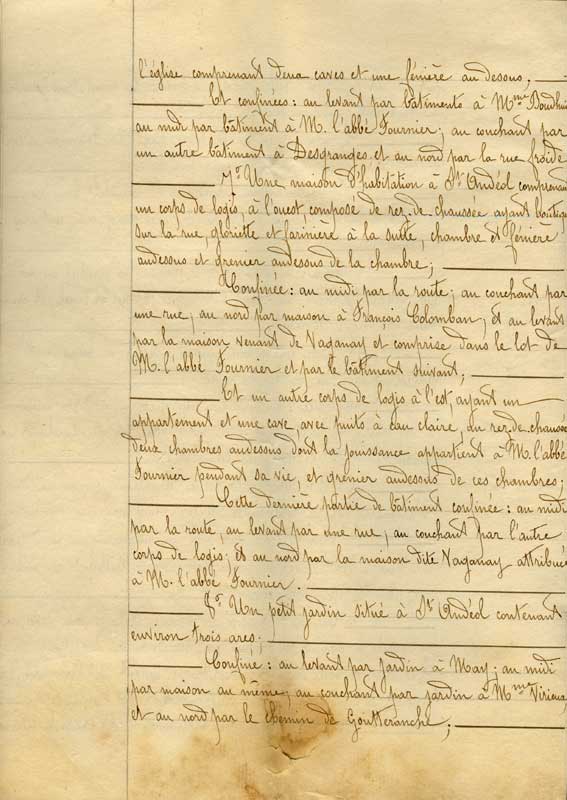 l'église comprenant deux caves et une fénière au dessous;
Et confinées: au levant par bâtiments à Mme Boudhui
au midi par bâtiment à M. l'abbé Fournier; au couchant par
un autre bâtiment à Desgranges et au nord par la rue froide
7o Une maison d'habitation à St Andéol comprenan
un corps de logis, à l'ouest, composé de rez-de-chaussée ayant boutique
sur la rue, gloriette et farinière à la suite, chambre et fénière
audessus et grenier audessus de la chambre;
Confinée: au midi par la route; au couchant par
une rue; au nord par maison à François Colomban; et au levant
par la maison venant de Vaganay et comprise dans le lot de
M. l'abbé Fournier et par le bâtiment suivant;
Et un autre corps de logis à l'est, ayant un
appartement et une cave, avec puits à eau claire, au rez-de-chaussée
deux chambres audessus dont la jouissance appartient à M. l'abbé
Fournier pendant sa vie, et grenier audessus de ces chambres;
Cette dernière partie de bâtiment confinée: au midi
par la route, au levant par une rue, au couchant par l'autre
corps de logis; Et au nord par la maison dite Vaganay attribuée
à M. l'abbé Fournier.
8o Un petit jardin situé à St Andéol contenant
environ trois ares;
Confiné: au levant par jardin à May; au midi
par maison au même; au couchant par jardin à Mme Virieux,
et au nord par le chemin de Goutteranche;